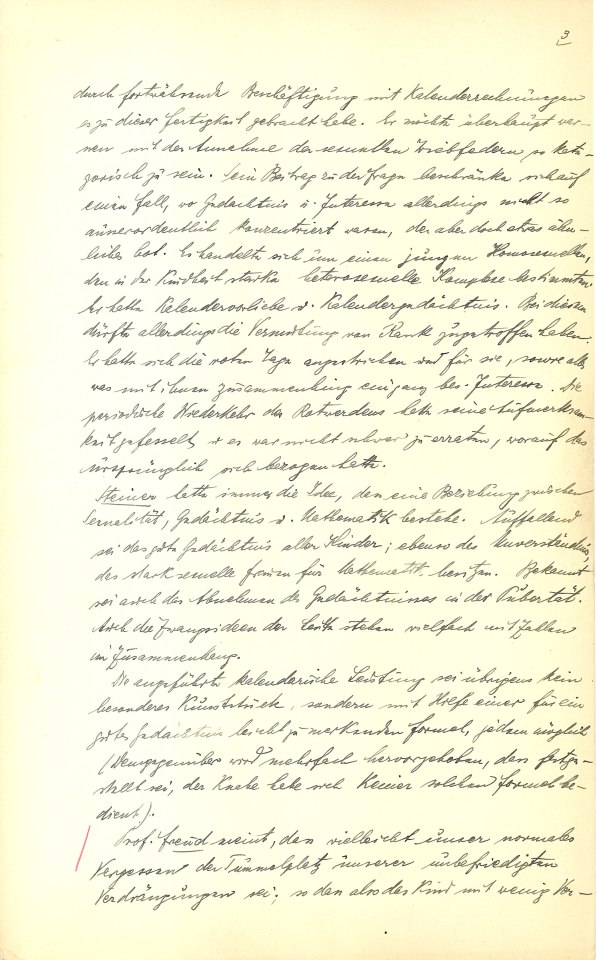 3
durch fortwährende Beschäftigung mit Kalenderrechnungen
es zu dieser Fertigkeit gebracht habe. Er möchte überhaupt war-
nen mit der Annahme der sexuellen Triebfedern so kate-
gorisch zu sein. Sein Beitrag zu der Frage beschränke sich auf
einen Fall, wo Gedächtnis u. Interesse allerdings nicht so
ausserordentlich konzentriert waren, der aber doch etwas ähn-
liches bot. Es handelte sich um einen jungen Homosexuellen,
den in der Kindheit starke heterosexuelle Komplexe bestimmten.
Er hatte Kalendervorliebe u. Kalendergedächtnis. Bei diesem
dürfte allerdings die Vermutung von Rank zugetroffen haben.
Er hatte sich die roten Tage angestrichen und für sie, sowie alles
was mit ihnen zusammenhing ein ganz bes. Interesse. Die
periodische Wiederkehr des Rotwerdens hatte seine Aufmerksam-
keit gefesselt u es war nicht schwer zu erraten, worauf das
ursprünglich sich bezogen hatte.
Steiner hatte immer die Idee, dass eine Beziehung zwischen
Sexualität, Gedächtnis u. Mathematik bestehe. Auffallend
sei das gute Gedächtnis aller Kinder; ebenso das Unverständnis,
das stark sexuelle Frauen für Mathematik besitzen. Bekannt
sei auch das Abnehmen des Gedächtnisses in der Pubertät.
Auch die Zwangsideen der Leute stehen vielfach mit Zahlen
im Zusammenhang.
Die angeführte kalendarische Leistung sei übrigens kein
besonderes Kunststück, sondern mit Hilfe einer für ein
gutes Gedächtnis leicht zu merkenden Formel, jedem möglich
(Demgegenüber wird mehrfach hervorgehoben, dass festge-
stellt sei, der Knabe habe sich keiner solchen Formel be-
dient).
Prof. Freud meint, dass vielleicht unser normales
Vergessen der Tummelplatz unserer unbefriedigten
Verdrängungen sei; so dass also das Kind mit wenig Ver-